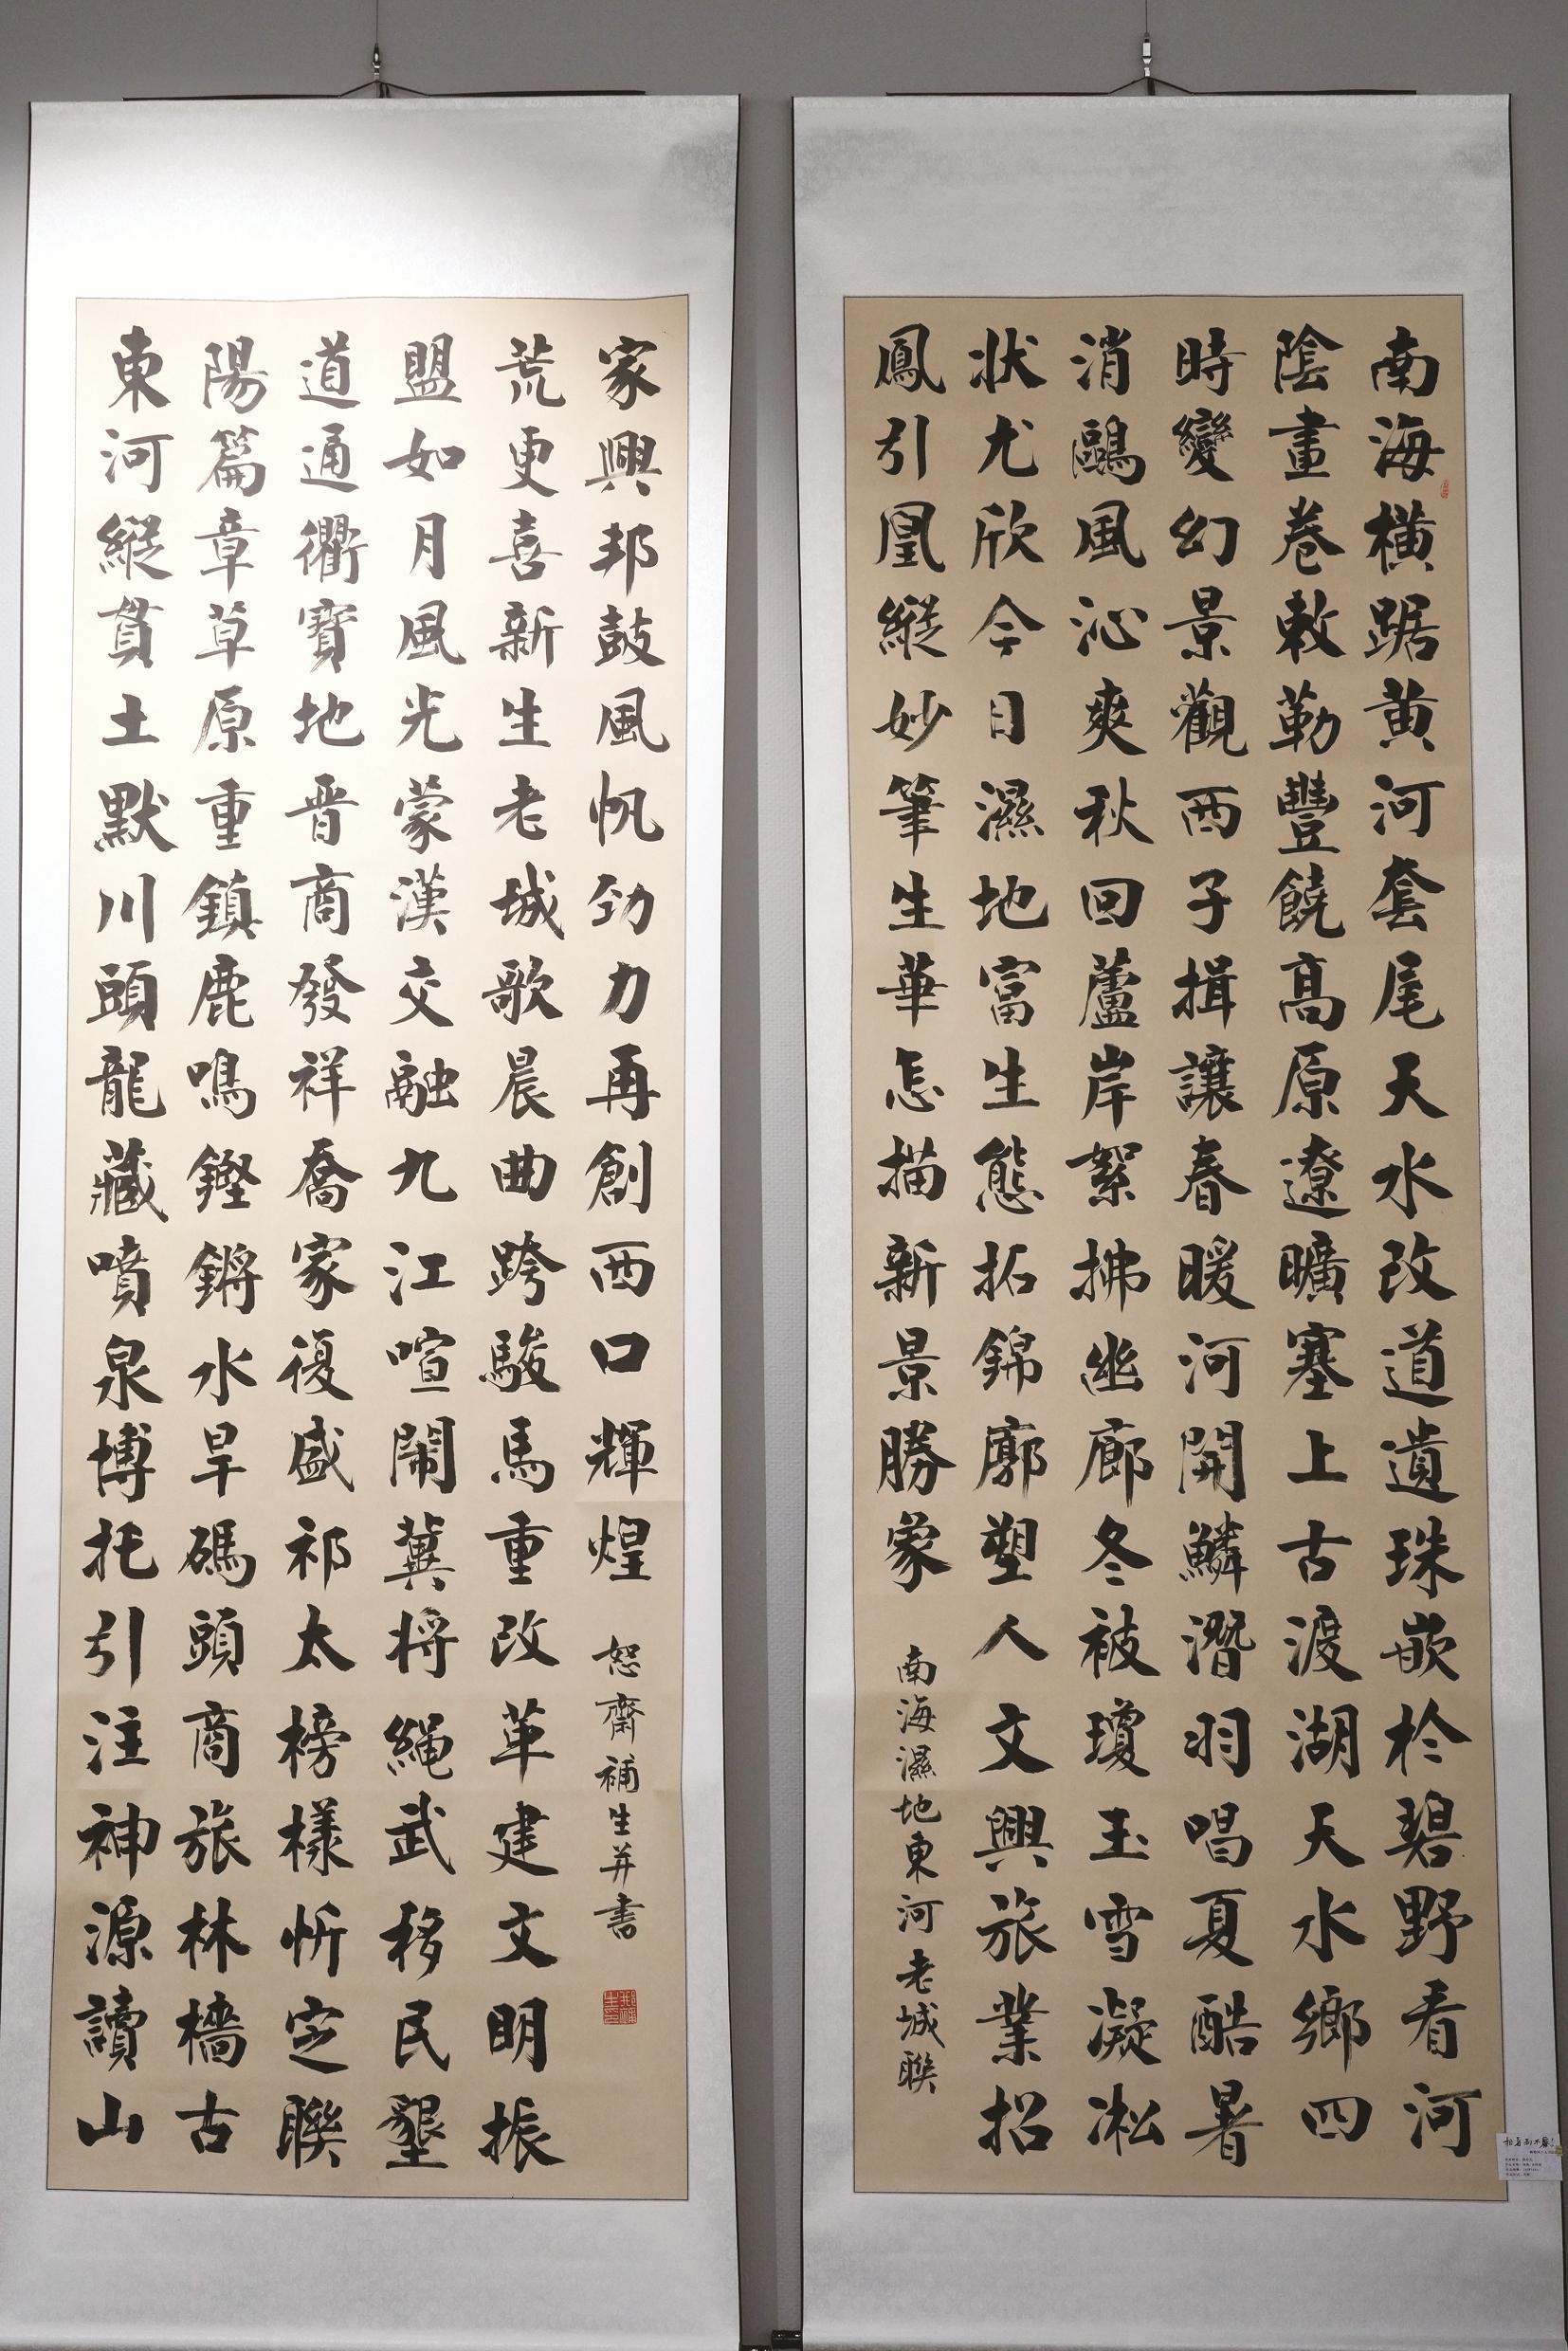 南海橫踞黃河套尾天水改道遺珠嵌於碧野看河
陰畫卷敕勒豐饒高原遼曠塞上古渡湖天水鄉四
時變幻景觀西子揖讓春暖河開鱗潛羽唱夏酷暑
消鷗風沁爽秋回蘆岸絮拂幽廊冬被瓊玉雪凝凇
狀尤欣今日濕地富生態拓錦廓塑人文興旅業招
鳳引凰縱妙筆生華怎描新景勝象
南海濕地東河老城聯
東河縱貫土默川頭龍藏噴泉博托引注神源讀山
陽篇章草原重鎮鹿鳴鏗鏘水旱碼頭商旅林檣古
道通衢寶地晉商發祥喬家復盛祁太榜樣忻定聯
盟如月風光蒙漢交融九江喧鬧冀將繩武移民墾
荒更喜新生老城歌晨曲跨駿馬重改革建文明振
家興邦鼓風帆勁力再創西口輝煌
恕齋補生并書